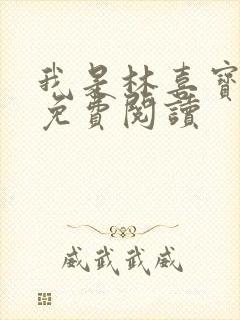 我是林喜寶
免費閱讀
威武武威